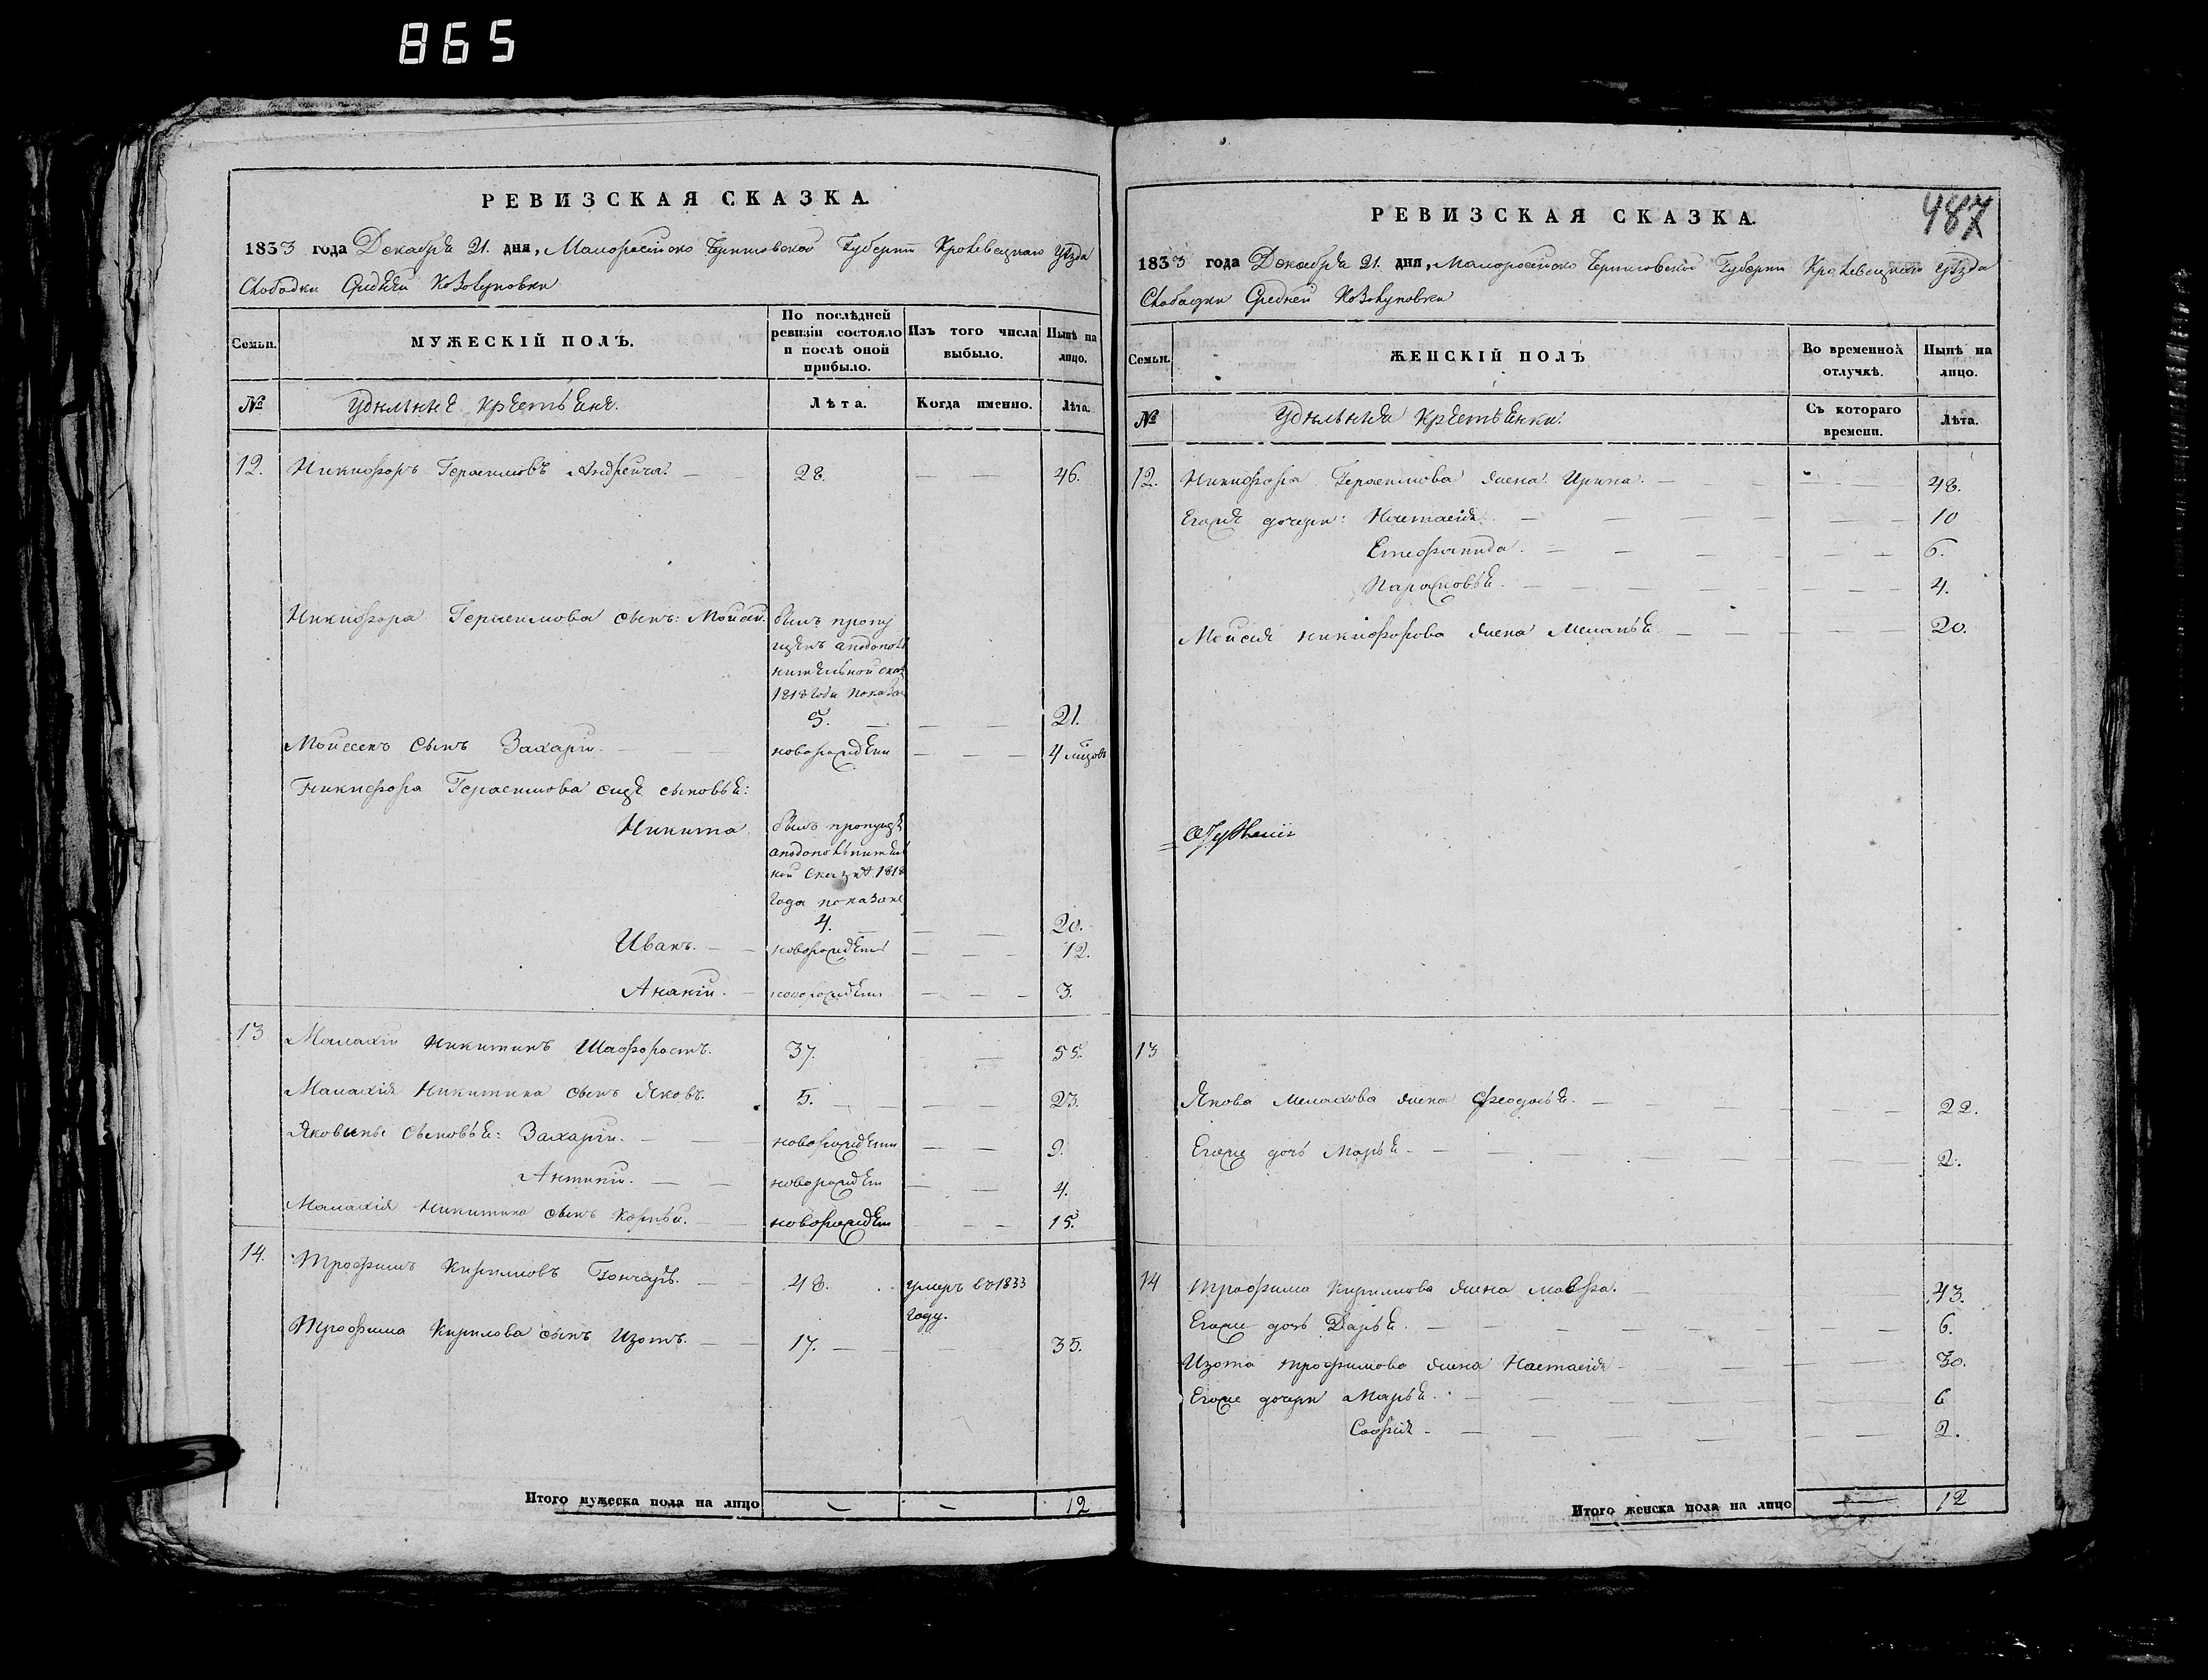 865
РЕВИЗСКАЯ СКАЗКА.
1833 года Декабря 21. дня, Малоросійско Черниговской Губерніи Кролевецкаго Уѣзда
Слободки Средней Козолуповки
Семьи.
МУЖЕСКІЙ ПОЛЪ.
По послѣдней
ревизіи состояло
и послѣ оной
прибыло.
Изъ того числа
выбыло.
Нынѣ на
лицо.
№
Удѣльные крестьяне.
Лѣта.
Когда именно.
Лѣта.
12. Никифоръ Герасимовъ — 28. — — 46.
Никифора Герасимова сынъ: Мойсей. былъ пропу
щенъ а по допол
нительной сказ
1818 года показа
5. — — — 21.
Мойсеевъ сынъ Захарій. — новорожден — — — 4 мѣсяцовъ
Никифора Герасимова еще сыновья:
Никита. былъ пропуще
а по дополнитель
ной сказкѣ 1818
года показанъ
4. — — 20.
Иванъ. — новорожден — — — 12.
Ананій. — новорожден — — — 3.
13 Малахій Никитинъ Шафоростъ. 37. — 55.
Малахія Никитина сынъ Яковъ. 5. — — — — 23.
Яковыны сыновья: Захарій. — новорожден — — 9.
Антипій. — — новорожден — — 4.
Малахія Никитина сынъ Корнѣй. — новорожден — — — 15.
14. Трофимъ Кириловъ Гончаръ. — 48. умеръ въ 1833
году.
Трофима Кирилова сынъ Изотъ. — 17. — — — — 35.
Итого мужеска пола на лицо — — 12
487
РЕВИЗСКАЯ СКАЗКА.
1833 года Декабря 21. дня, Малоросійско Черниговской Губерніи Кролевецкаго уѣзда
Слободки Средней Козолуповки
Семьи.
ЖЕНСКІЙ ПОЛЪ
Во временной
отлучкѣ.
Нынѣ на
лицо.
№
Удѣльныя Крестьянки.
Съ котораго
времени.
Лѣта.
12. Никифора Герасимова жена Ирина. — 48.
Егожя дочери: Настасія. — 10
Епефанида. — 6.
Парасковья. — 4.
Мойсея Никифорова жена Меланья — 20.
13
Якова Малахова жена Феодосья. — 22.
Егоже дочь Марья. — 2.
14 Трофима Кирилова жена Мавра. — 43.
Егоже дочь Дарья. — 6.
Изота Трофимова жена Настасія — 30.
Егоже дочери Марья. — 6
Софія — 2.
Итого женска пола на лицо — 12